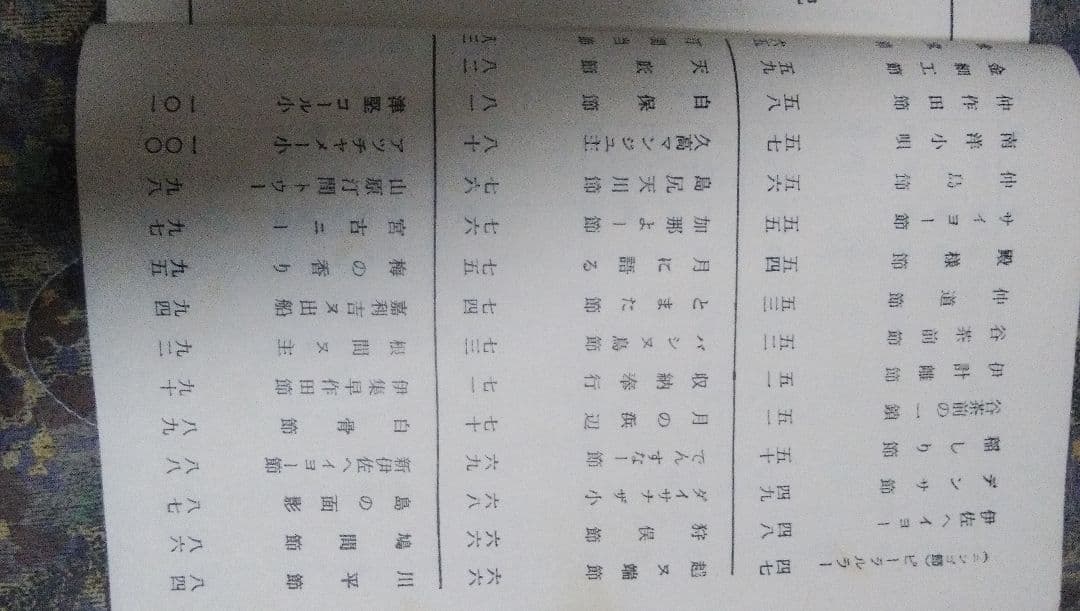 四七
伊佐ヘイヨー 四八
デンサ節 四九
稲しり節 五十
谷茶前の一鎖 五一
伊計離節 五一
谷茶前節 五二
仲道節 五三
殿様節 五四
サイヨー節 五五
仲島節 五六
南洋小唄 五七
仲作田節 五八
金細工節 五九
越ヌ端節 六六
狩俣節 六六
ダイサナザ小 六八
でんすなー節 六九
月の浜辺 七十
収納奉行 七一
バシヌ鳥節 七三
とまた節 七四
月に語る 七五
加那よー節 七六
島尻天川節 七六
久高マンジュ主 八十
白保節 八一
天底節 八二
八三
川平節 八四
鳩間節 八六
島の面影 八七
新伊佐ヘイヨー節 八八
白骨節 八九
伊集早作田節 九十
根間ヌ主 九二
嘉利吉ヌ出船 九四
梅の香り 九五
宮古ニー 九七
山原汀間トゥー 九八
アッチャメー小 一〇〇
津堅コール小 一〇一